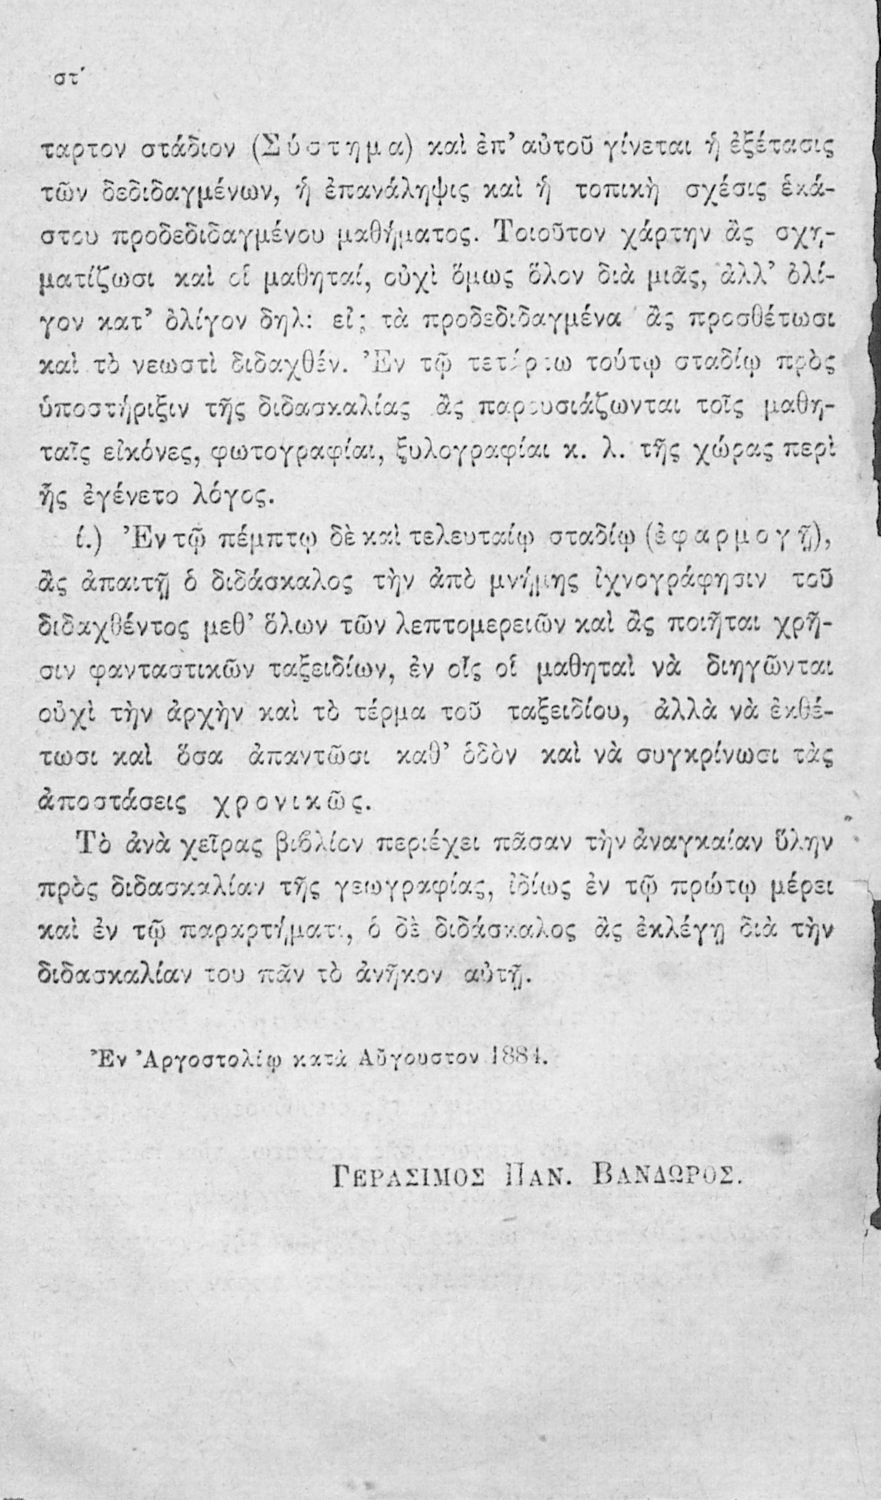 στ΄
ταρτον στάδιον (Σύστημα) καὶ ἐπ’ αὐτοῦ γίνεται ἡ ἐξέτασις
τῶν δεδιδαγμένων, ἡ ἐπανάληψις καὶ ἡ τοπικὴ σχέσις ἑκά-
στου προδεδιδαγμένου μαθήματος. Τοιοῦτον χάρτην ἂς σχη-
ματίζωσι καὶ οἱ μαθηταί, οὐχὶ ὅμως ὅλον διὰ μιᾶς, ἀλλ’ ὀλί-
γον κατ’ ὀλίγον δηλ: εἰς τὰ προδεδιδαγμένα ἂς προσθέτωσι
καὶ τὸ νεωστὶ διδαχθέν. Ἐν τῷ τετάρτῳ τούτῳ σταδίῳ πρὸς
ὑποστήριξιν τῆς διδασκαλίας ἂς παρουσιάζωνται τοῖς μαθη-
ταῖς εἰκόνες, φωτογραφίαι, ξυλογραφίαι κ. λ. τῆς χώρας περὶ
ἧς ἐγένετο λόγος.
ί.) Ἐν τῷ πέμπτῳ δὲ καὶ τελευταίῳ σταδίῳ (ἐφαρμογῇ),
ἂς ἀπαιτῇ ὁ διδάσκαλος τὴν ἀπὸ μνήμης ἰχνογράφησιν τοῦ
διδαχθέντος μεθ’ ὅλων τῶν λεπτομερειῶν καὶ ἂς ποιῆται χρῆ-
σιν φανταστικῶν ταξειδίων, ἐν οἷς οἱ μαθηταὶ νὰ διηγῶνται
οὐχὶ τὴν ἀρχὴν καὶ τὸ τέρμα τοῦ ταξειδίου, ἀλλὰ νὰ ἐκθέ-
τωσι καὶ ὅσα ἀπαντῶσι καθ’ ὁδὸν καὶ νὰ συγκρίνωσι τὰς
ἀποστάσεις χρονικῶς.
Τὸ ἀνὰ χεῖρας βιβλίον περιέχει πᾶσαν τὴν ἀναγκαίαν ὕλην
πρὸς διδασκαλίαν τῆς γεωγραφίας, ἰδίως ἐν τῷ πρώτῳ μέρει
καὶ ἐν τῷ παραρτήματι, ὁ δὲ διδάσκαλος ἂς ἐκλέγῃ διὰ τὴν
διδασκαλίαν του πᾶν τὸ ἀνῆκον αὐτῇ.
Ἐν Ἀργοστολίῳ κατὰ Αὔγουστον 1884.
ΓΕΡΑΣΙΜΟΣ ΠΑΝ. ΒΑΝΔΩΡΟΣ.